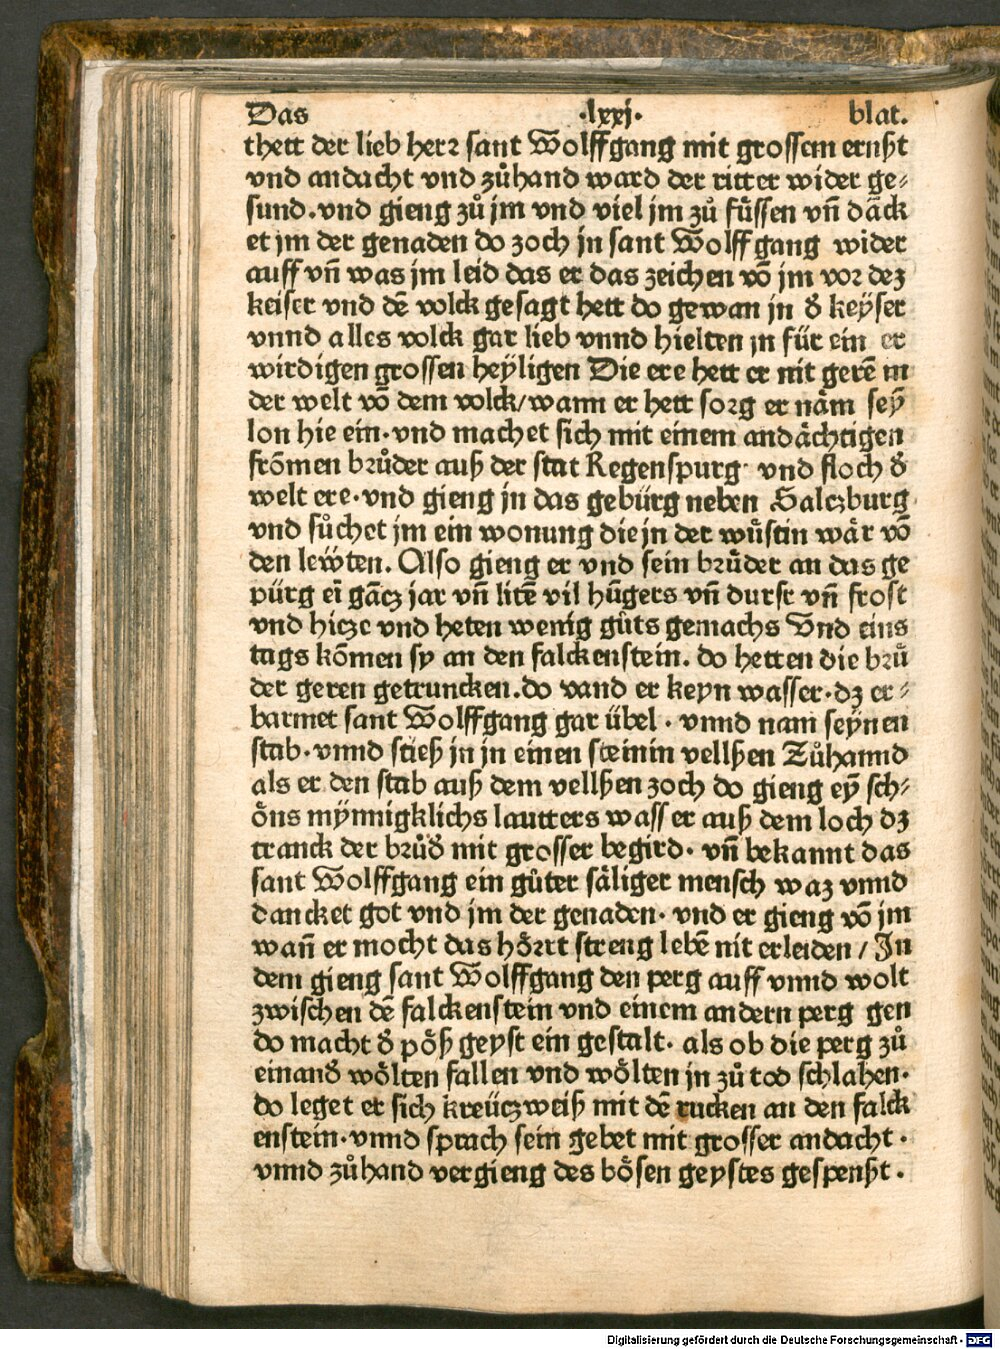 Das .lxxj. blat.
thett der lieb herꝛ sant Wolffgang mit grossem ernßt
vnd andacht vnd zůhand ward der ritter wider ge⸗
sund. vnd gieng zů jm vnd viel jm zů füssen vn̄ dāck
et jm der genaden do zoch jn sant Wolffgang wider
auff vn̄ was jm leid das er das zeichen vō jm vor dez
keiser vnd dē volck gesagt hett do gewan in đ keÿser
vnnd alles volck gar lieb vnnd hielten jn für ein er
wirdigen grossen heÿligen Die ere hett er nit gerē in
der welt vō dem volck/wann er hett sorg er näm seȳ
lon hie ein. vnd machet sich mit einem andächtigen
frömen brůder auß der stat Regenspurg vnd floch đ
welt ere. vnd gieng jn das gebürg neben Salczburg
vnd sůchet jm ein wonung die jn der wüstin wär vō
den lewten. Also gieng er vnd sein brůder an das ge
pürg eī gācz jar vn̄ litē vil hūgers vn̄ durst vn̄ frost
vnd hicze vnd heten wenig gůts gemachs Vnd eins
tags kōmen sy an den falckenstein. do hetten die brů
der geren getruncken. do vand er keyn wasser. dz er⸗
barmet sant Wolffgang gar übel. vnnd nam seÿnen
stab. vnnd stieß jn in einen steinin vellßen Zůhannd
als er den stab auß dem vellßen zoch do gieng eÿ sch⸗
öns mÿnnigklichs lautters wasser auß dem loch dz
tranck der brůđ mit grosser begird. vn̄ bekannt das
sant Wolffgang ein gůter säliger mensch waz vnnd
dancket got vnd jm der genaden. vnd er gieng vō jm
wan̄ er mocht das hörtt streng lebē nit erleiden / In
dem gieng sant Wolffgang den perg auff vnnd wolt
zwischen dē falckenstein vnd einem andern perg gen
do macht đ pöß geyst ein gestalt. als ob die perg zů
einanđ wölten fallen vnd wölten jn zů tod schlahen.
do leget er sich kreüczweiß mit dē rucken an den falck
enstein. vnnd sprach sein gebet mit grosser andacht.
vnnd zůhand vergieng des bösen geystes gespenßt.
Digitalisierung gefördert durch die Deutsche Forschungsgemeinschaft - DFG